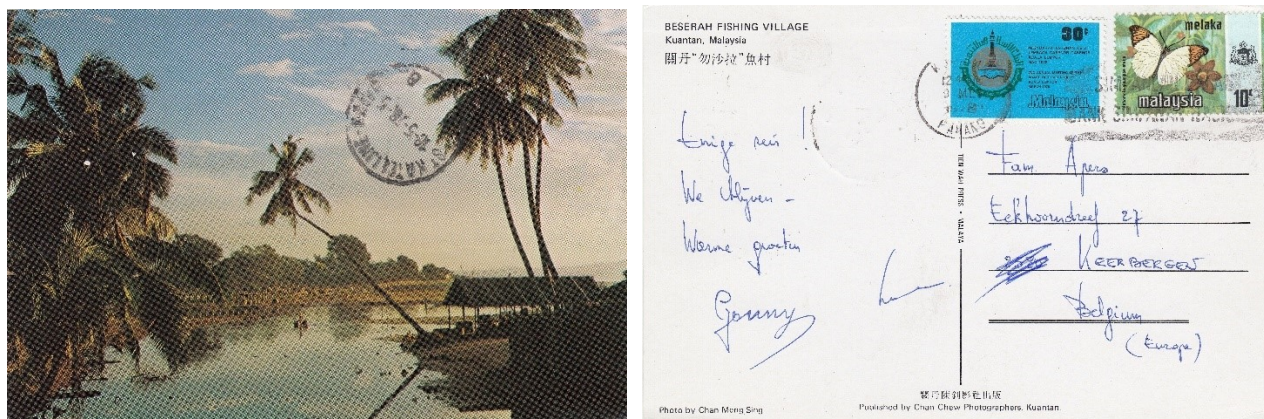 BESERAH FISHING VILLAGE
Kuantan, Malaysia
關丹"勿沙拉"魚村
30¢
Malaysia
melaka
malaysia
10¢
PAHANG
Enige reis !
We blijven -
Warme groeten
Gonny
Fam Apers
Eekhoorndreef 27
KEERBERGEN
Belgium
(Europe)
TIEN WAH PRESS • MALAYA
Photo by Chan Meng Sing
Published by Chan Chew Photographers, Kuantan.